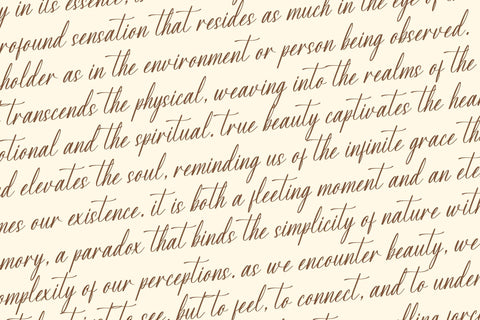 y in its essence, is
rofound sensation that resides as much in the eye of
holder as in the environment or person being observed.
transcends the physical, weaving into the realms of the
otional and the spiritual. true beauty captivates the hear
d elevates the soul, reminding us of the infinite grace th
nes our existence. it is both a fleeting moment and an ete
mory, a paradox that binds the simplicity of nature with
omplexity of our perceptions. as we encounter beauty, we
not just to see, but to feel, to connect, and to under